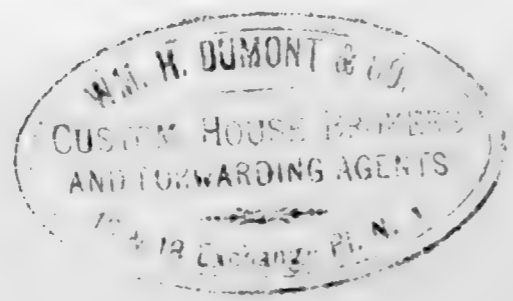 WM. H. DUMONT & CO.
CUSTOM HOUSE BROKERS
AND FORWARDING AGENTS
& 18 Exchange Pl. N.